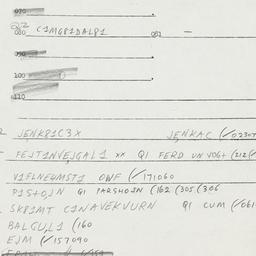 070
080 C1MG81DAL81 081 -
090
100
110
JENK81C3X JENKAC (✓0230
FEJT1NVEJGAL1 XX Q1 FERD UN VOG+ (212(✓
V1FLNEHMST1 OWF (✓171060
P1S+OJN Q1 PARSHOJN (162 (305 (306
SK81MT C1NAVEKVURN Q1 CUM (✓061
BALGUJ1 (160
EJM (✓157090